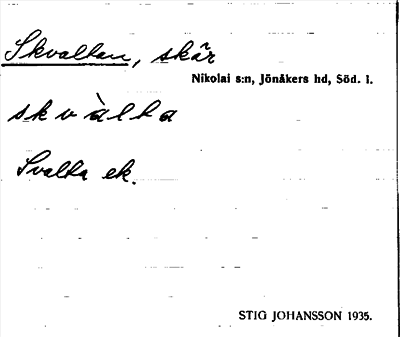 Skvaltan, skär
Nikolai s:n, Jönåkers hd, Söd. l.
skvàlta
Svalta ek.
STIG JOHANSSON 1935.